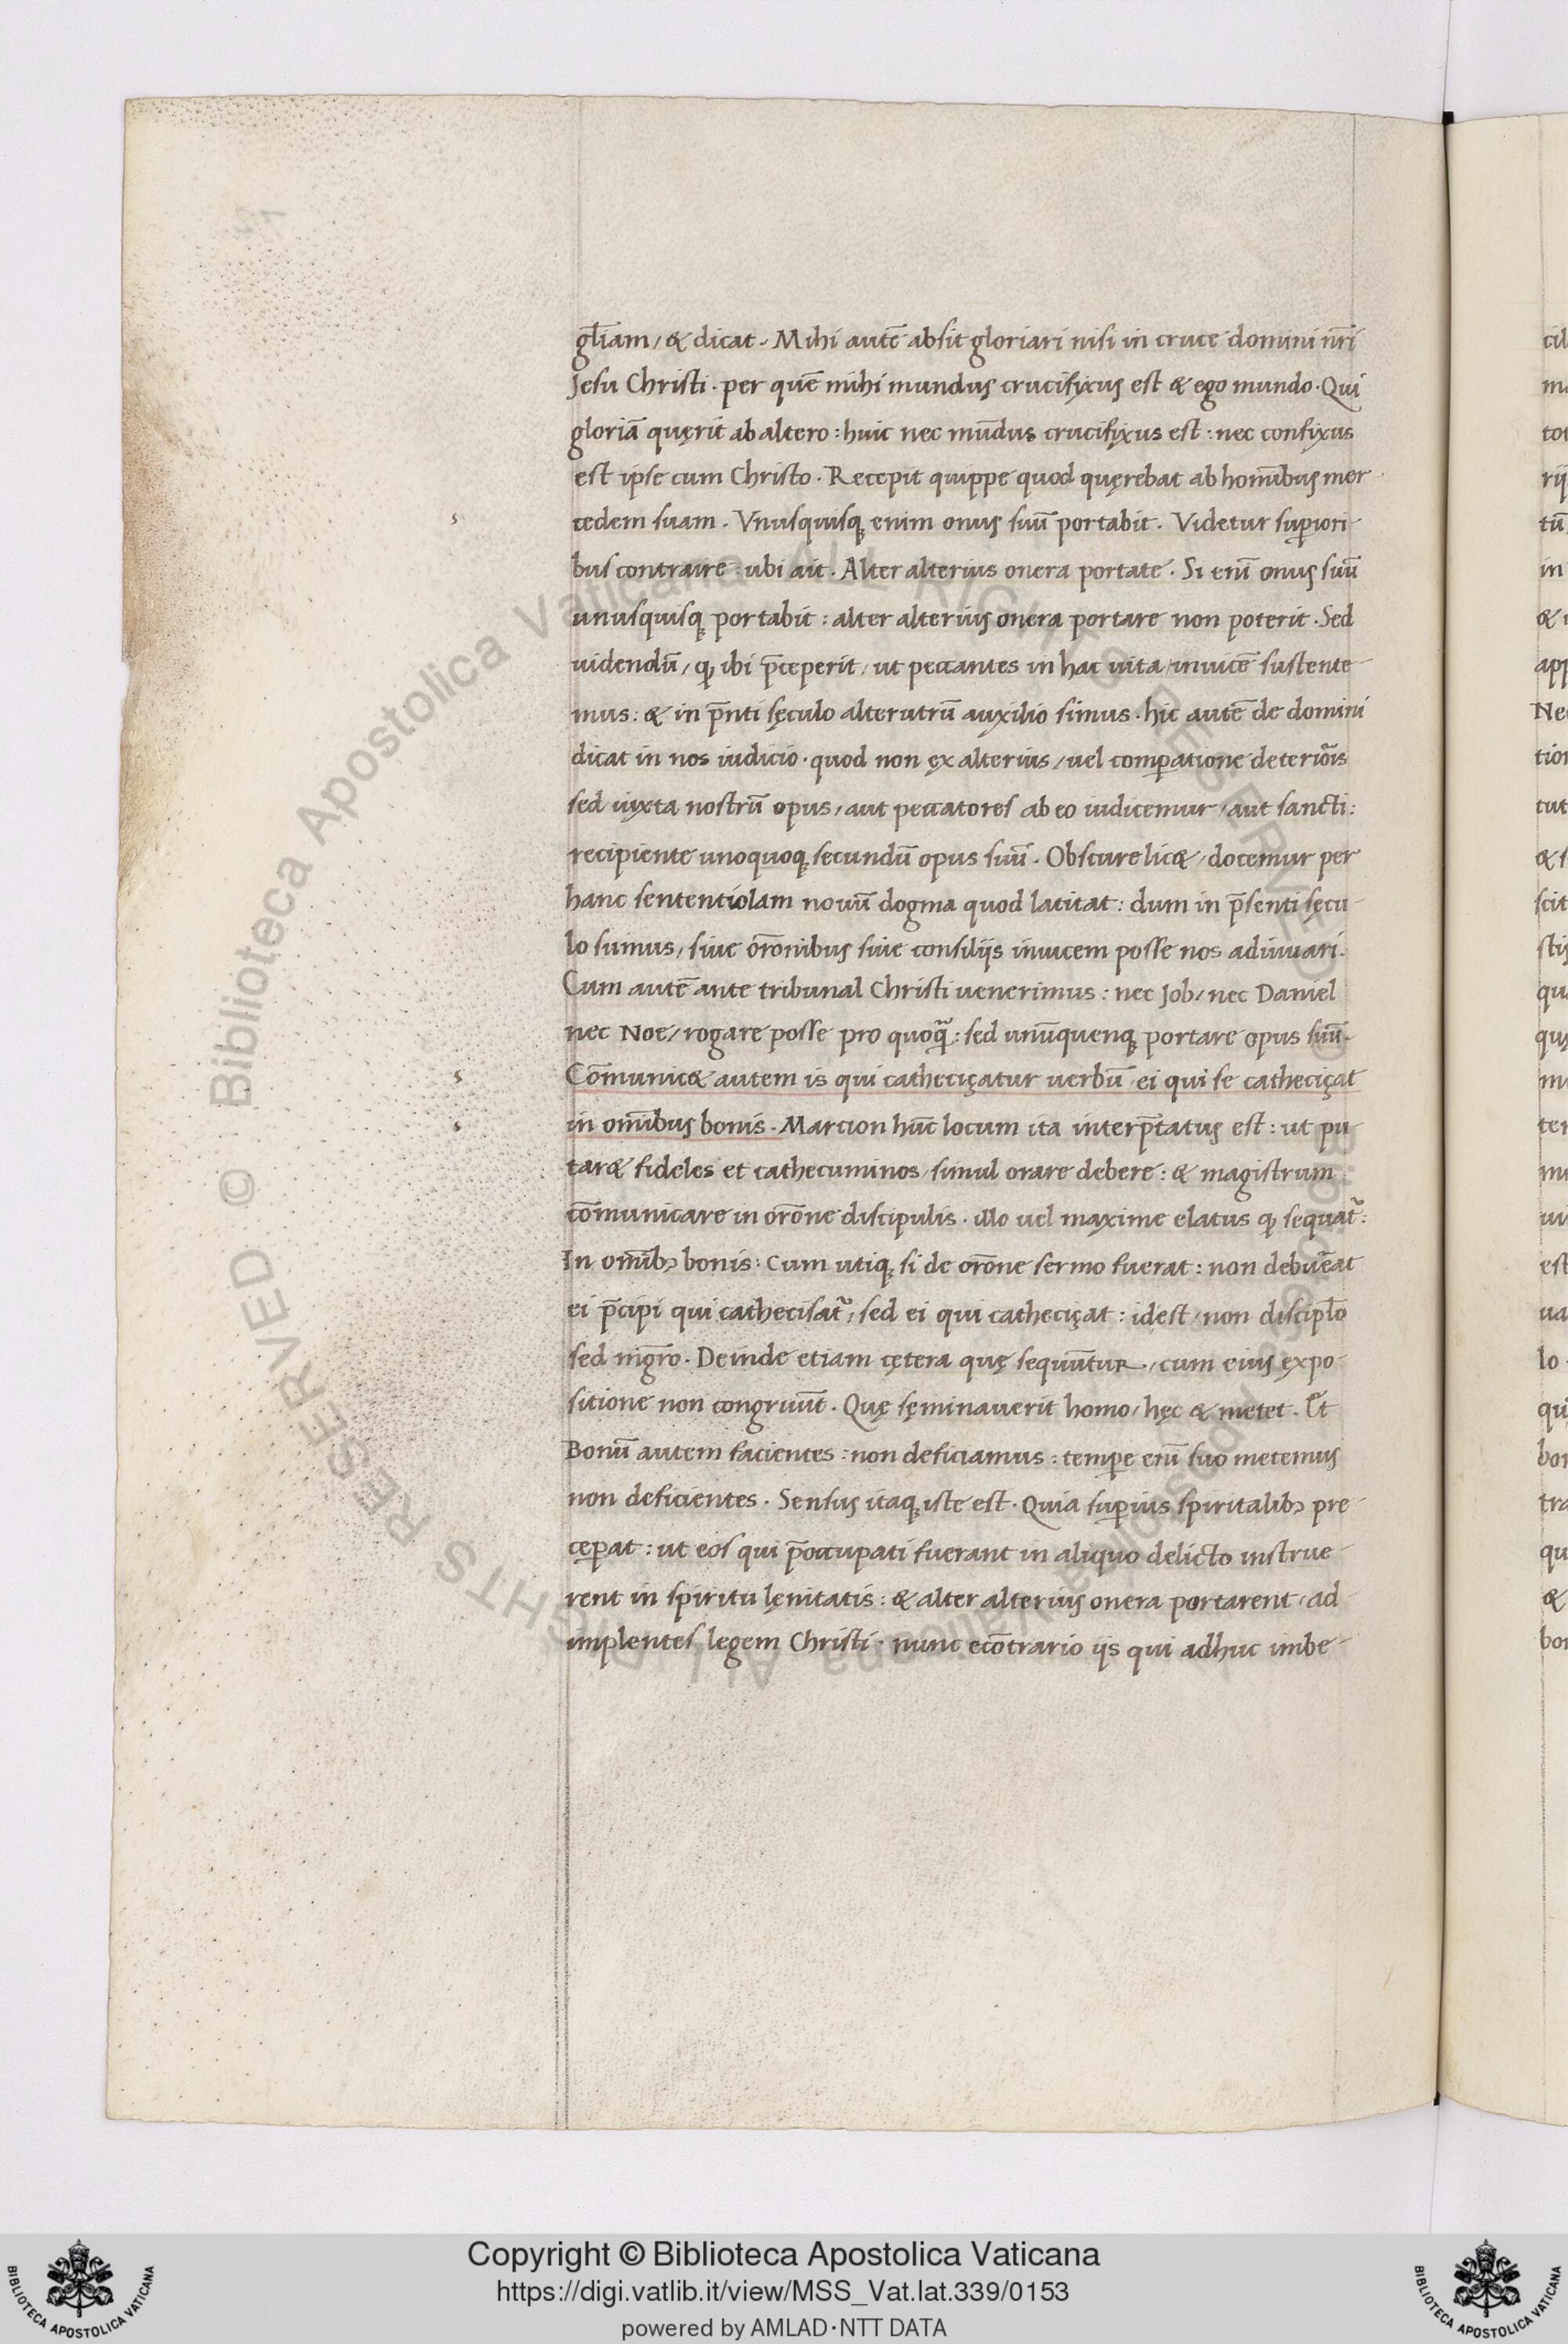 gl̄iam, & dicat. Mihi autē absit gloriari nisi in cruce domini nr̄i
Jesu Christi. per quē mihi mundus crucifixus est & ego mundo. Qui
gloriā quęrit ab altero: huic nec mūdus crucifixus est: nec confixus
est ipse cum Christo. Recepit quippe quod quęrebat ab homībus mer
cedem suam. Vnusquisq; enim onus suū portabit. Videtur supiori-
bus contraire: ubi ait. Alter alterius onera portate. Si eni͞ onus suū
unusquisq; portabit: alter alterius onera portare non poterit. Sed
uidendū, ꝙ ibi p̄ceperit, ut peccantes in hac uita, inuicē sustente-
mus: & in p̄nti sęculo alterutrū auxilio simus. hic autē de domini
dicat in nos iudicio. quod non ex alterius, uel compatione deteriōis
sed iuxta nostrū opus, aut peccatores ab eo iudicemur, aut sancti:
recipiente unoquoq; secundū opus suū. Obscure lic&, docemur per
hanc sententiolam nouū dogma quod latitat: dum in p̄senti sęcu-
lo sumus, siue ōronibus siue consilijs inuicem posse nos adiuuari.
Cum autē ante tribunal Christi uenerimus: nec Job, nec Daniel
nec Noe, rogare posse pro quoq̃: sed unūquenq; portare opus suū.
Cōmunic& autem is qui catheciçatur uerbū ei qui se catheciçat
in omībus bonis. Marcion hūc locum ita interp̄tatus est: ut pu-
tar& fideles et cathecuminos, simul orare debere: & magistrum
cōmunicare in orōne discipulis. illo uel maxime elatus ꝙ sequat᷑:
In omīb; bonis: Cum utiq; si de orōne sermo fuerat: non debuēat
ei p̄cipi qui cathecisat᷑, sed ei qui catheciçat: idest, non discipl̄o
sed mgr̄o. Deinde etiam cętera quę sequūtur, cum eius expo-
sitione non congruūt. Quę sęminauerit homo, hęc & metet. Et
Bonū autem facientes: non deficiamus: tempe eni͞ suo metemus
non deficientes. Sensus itaq; iste est. Quia supius spiritalib; pre-
cepat: ut eos qui p̄occupati fuerant in aliquo delicto instrue-
rent in spiritu lęnitatis: & alter alterius onera portarent, ad-
implentes legem Christi. nunc ecōtrario ijs qui adhuc imbe-
Copyright © Biblioteca Apostolica Vaticana
https://digi.vatlib.it/view/MSS_Vat.lat.339/0153
powered by AMLAD·NTT DATA